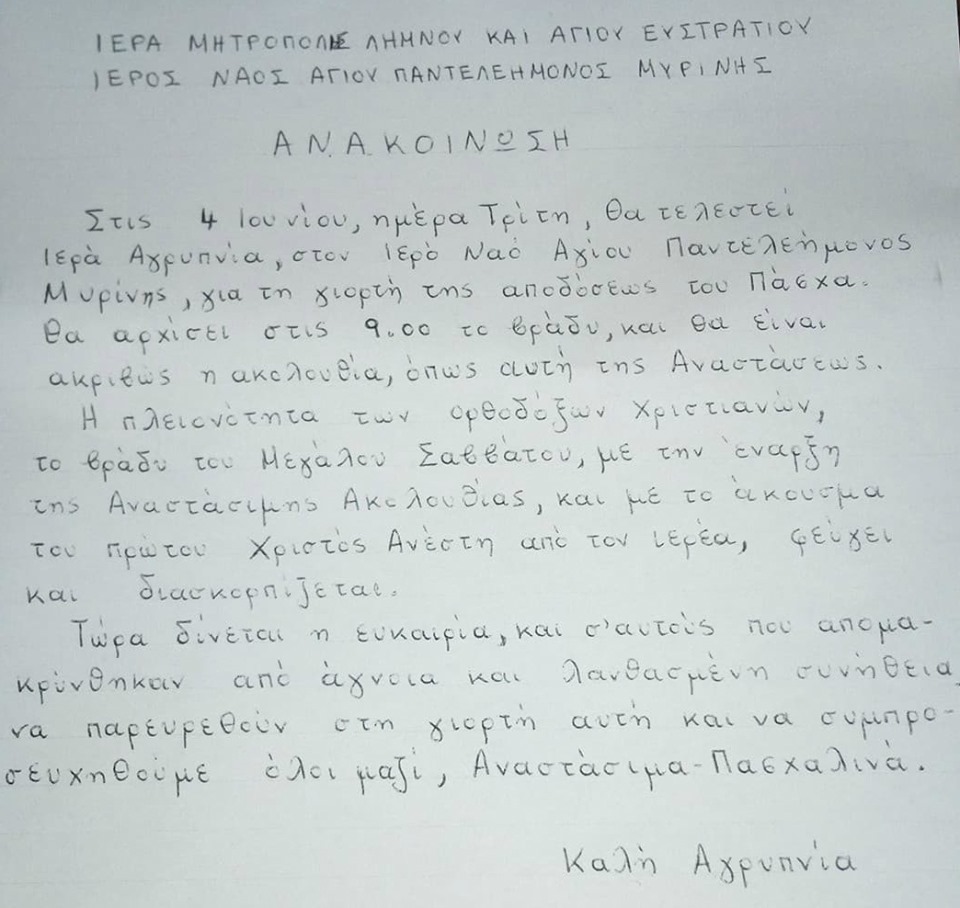 ΙΕΡΑ ΜΗΤΡΟΠΟΛΙΣ ΛΗΜΝΟΥ ΚΑΙ ΑΓΙΟΥ ΕΥΣΤΡΑΤΙΟΥ
ΙΕΡΟΣ ΝΑΟΣ ΑΓΙΟΥ ΠΑΝΤΕΛΕΗΜΟΝΟΣ ΜΥΡΙΝΗΣ
ΑΝΑΚΟΙΝΩΣΗ
Στις 4 Ιουνίου, ημέρα Τρίτη, θα τελεστεί
Ιερά Αγρυπνία, στον Ιερό Ναό Αγίου Παντελεήμονος
Μυρίνης, για τη γιορτή της αποδόσεως του Πάσχα.
Θα αρχίσει στις 9.00 το βράδυ, και θα είναι
ακριβώς η ακολουθία, όπως αυτή της Αναστάσεως.
Η πλειονότητα των ορθοδόξων Χριστιανών,
το βράδυ του Μεγάλου Σαββάτου, με την έναρξη
της Αναστάσιμης Ακολουθίας, και με το άκουσμα
του πρώτου Χριστός Ανέστη από τον ιερέα, φεύγει
και διασκορπίζεται.
Τώρα δίνεται η ευκαιρία, και σ'αυτούς που απομα-
κρύνθηκαν από άγνοια και λανθασμένη συνήθεια,
να παρευρεθούν στη γιορτή αυτή και να συμπρο-
σευχηθούμε όλοι μαζί, Αναστάσιμα-Πασχαλινά.
Καλή Αγρυπνία